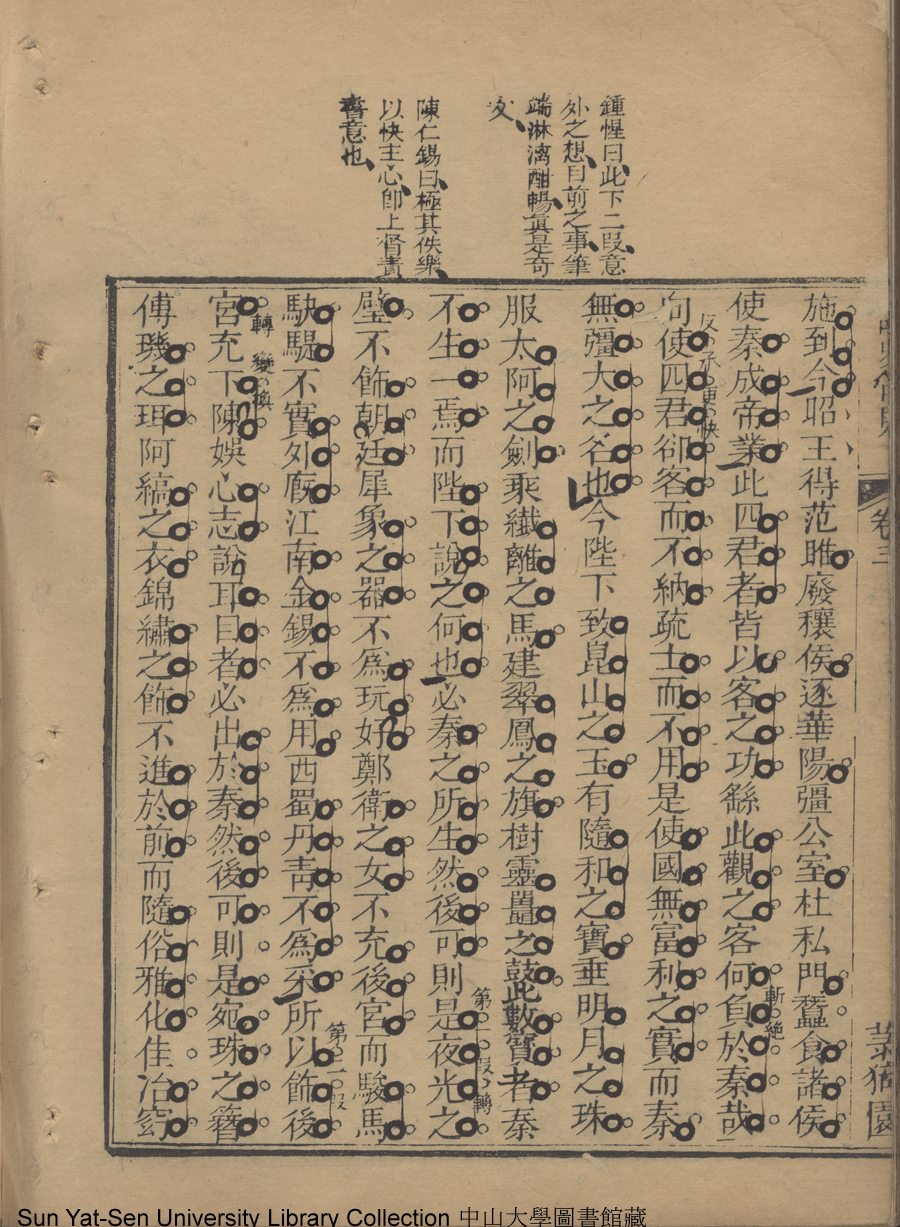 鍾惺曰此下二段意
外之想目前之事筆
端淋漓酣暢眞是奇
文
陳仁錫曰極其佚樂
以快主心卽上督責
書意也
卷三
施到今昭王得范雎廢穰侯逐華陽彊公室杜私門蠶食諸侯
使秦成帝業此四君者皆以客之功繇此觀之客何負於秦哉
斬絶
向使四君卻客而不納疏士而不用是使國無富利之實而秦
反承更快
無彊大之名也今陛下致崑山之玉有隨和之寶垂明月之珠
服太阿之劍乘纖離之馬建翠鳳之旗樹靈鼉之鼓此數寶者秦
不生一焉而陛下說之何也必秦之所生然後可則是夜光之
第一段轉
璧不飾朝廷犀象之器不爲玩好鄭衛之女不充後宮而駿馬
駃騠不實外廐江南金錫不爲用西蜀丹靑不爲采所以飾後
第二段
宮充下陳娛心志說耳目者必出於秦然後可則是宛珠之簪
轉變換
傅璣之珥阿縞之衣錦繡之飾不進於前而隨俗雅化佳冶窈
Sun Yat-Sen University Library Collection 中山大學圖書館藏